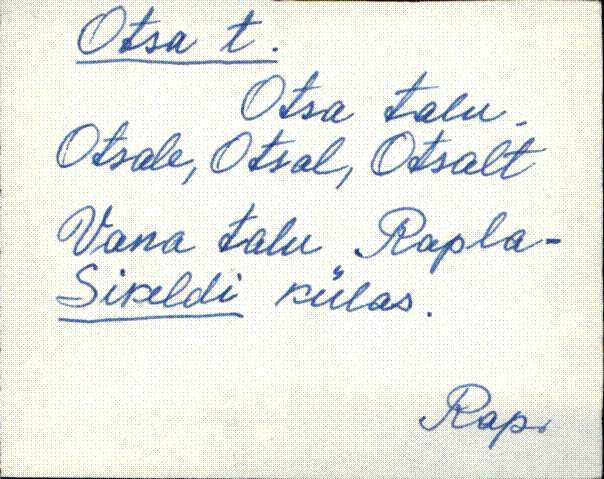 Otsa t.
Otsa talu.
Otsale, Otsal, Otsalt
Vana talu Rapla-
Sikeldi külas.
Rap.